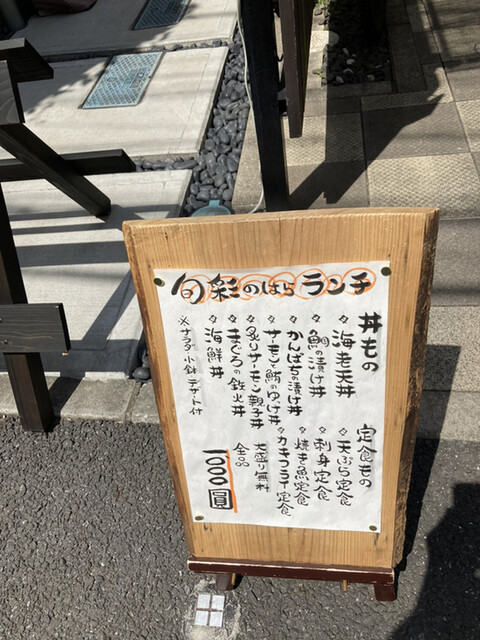 旬彩のはら ランチ
丼もの
◇海老天丼
◇鯛の漬け丼
◇かんぱちの漬け丼
◇サーモンと鮪のゆっけ丼
◇炙りサーモン親子丼
◇まぐろの鉄火丼
◇海鮮丼
※サラダ 小鉢 デザート付
定食もの
◇天ぷら定食
◇刺身定食
◇焼き魚定食
◇カキフライ定食
大盛り無料
全品
1000圓